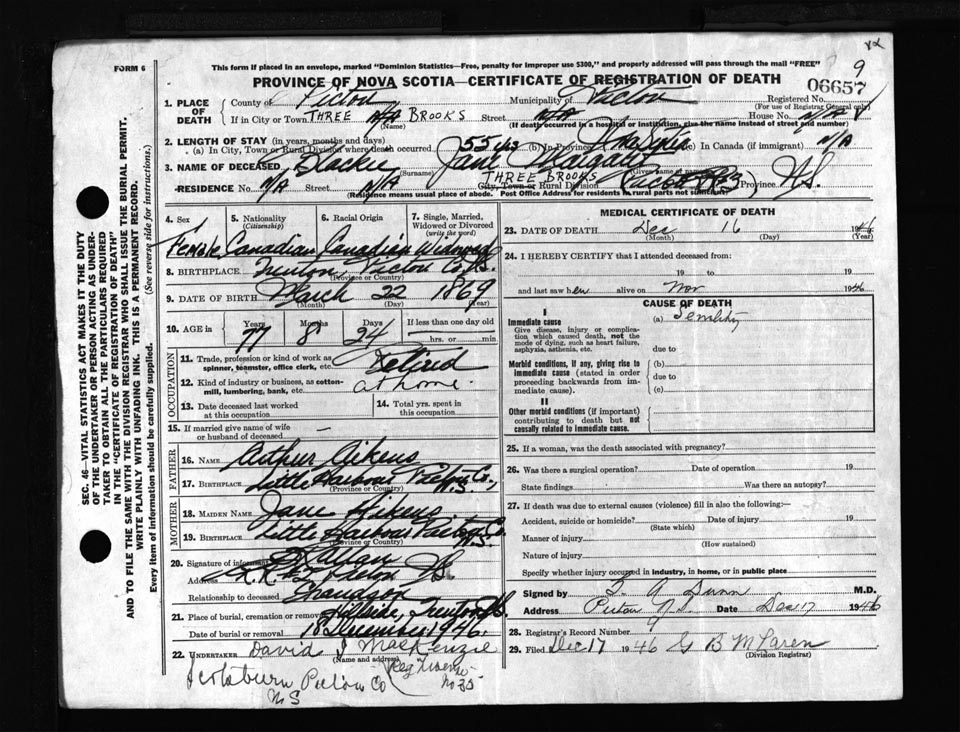 FORM 6
This form if placed in an envelope, marked "Dominion Statistics—Free, penalty for improper use $300," and properly addressed will pass through the mail "FREE"
9
PROVINCE OF NOVA SCOTIA—CERTIFICATE OF REGISTRATION OF DEATH
06657
1. PLACE OF DEATH
County of Pictou Municipality of Pictou Registered No.
(For use of Registrar General only)
If in City or Town THREE BROOKS (Name) Street N/A House No. N/A
(If death occurred in a hospital or institution, give the name instead of street and number)
2. LENGTH OF STAY (in years, months and days)
(a) In City, Town or Rural Division where death occurred 55 yrs In Canada (if immigrant) N/A
3. NAME OF DECEASED Blaikie (Surname) Jane Margaret (Given name or names)
RESIDENCE No. N/A Street N/A City, Town or Rural Division THREE BROOKS Province N.S.
(Residence means usual place of abode. Post Office Address for residents in rural parts not sufficient)
4. Sex Female
5. Nationality (Citizenship) Canadian
6. Racial Origin Canadian
7. Single, Married, Widowed or Divorced (write the word) Widowed
8. BIRTHPLACE Trenton, Pictou Co. N.S.
(Province or Country)
9. DATE OF BIRTH March (Month) 22 (Day) 1869 (Year)
10. AGE in Years 77 Months 8 Days 24 If less than one day old hrs. or min.
OCCUPATION
11. Trade, profession or kind of work as spinner, teamster, office clerk, etc. Retired
12. Kind of industry or business, as cotton-mill, lumbering, bank, etc. at home.
13. Date deceased last worked at this occupation
14. Total yrs. spent in this occupation
15. If married give name of wife or husband of deceased —
FATHER
16. NAME Arthur Aikens
17. BIRTHPLACE Little Harbour Pictou Co., N.S.
(Province or Country)
MOTHER
18. MAIDEN NAME Jane Aikens
19. BIRTHPLACE Little Harbour Pictou Co. N.S.
(Province or Country)
20. Signature of informant
Address R.R. #2 Pictou N.S.
Relationship to deceased Grandson
21. Place of burial, cremation or removal Hillside, Trenton N.S.
Date of burial or removal 18 December 1946.
22. UNDERTAKER David J MacKenzie
(Name and address)
Scotsburn Pictou Co N S
Reg No 35
MEDICAL CERTIFICATE OF DEATH
23. DATE OF DEATH Dec (Month) 16 (Day) 1946 (Year)
24. I HEREBY CERTIFY that I attended deceased from:
19 to 19
and last saw her alive on Nov 1946
CAUSE OF DEATH
I
Immediate cause (a) Senility
Give disease, injury or complication which caused death, not the mode of dying, such as heart failure, asphyxia, asthenia, etc.
due to
Morbid conditions, if any, giving rise to immediate cause (stated in order proceeding backwards from immediate cause).
(b)
due to
(c)
II
Other morbid conditions (if important) contributing to death but not causally related to immediate cause.
25. If a woman, was the death associated with pregnancy?
26. Was there a surgical operation? Date of operation 19
State findings Was there an autopsy?
27. If death was due to external causes (violence) fill in also the following:—
Accident, suicide or homicide? Date of injury 19
(State which)
Manner of injury
(How sustained)
Nature of injury
Specify whether injury occurred in industry, in home, or in public place
Signed by S. A. Dunn M.D.
Address Pictou N.S. Date Dec 17 1946
28. Registrar's Record Number 9
29. Filed Dec 17 1946 G B McLaren
(Division Registrar)
SEC. 46—VITAL STATISTICS ACT MAKES IT THE DUTY OF THE UNDERTAKER OR PERSON ACTING AS UNDERTAKER TO OBTAIN ALL THE PARTICULARS REQUIRED IN THE "CERTIFICATE OF REGISTRATION OF DEATH" AND TO FILE THE SAME WITH THE DIVISION REGISTRAR WHO SHALL ISSUE THE BURIAL PERMIT.
WRITE PLAINLY WITH UNFADING INK. THIS IS A PERMANENT RECORD.
Every item of information should be carefully supplied. (See reverse side for instructions.)